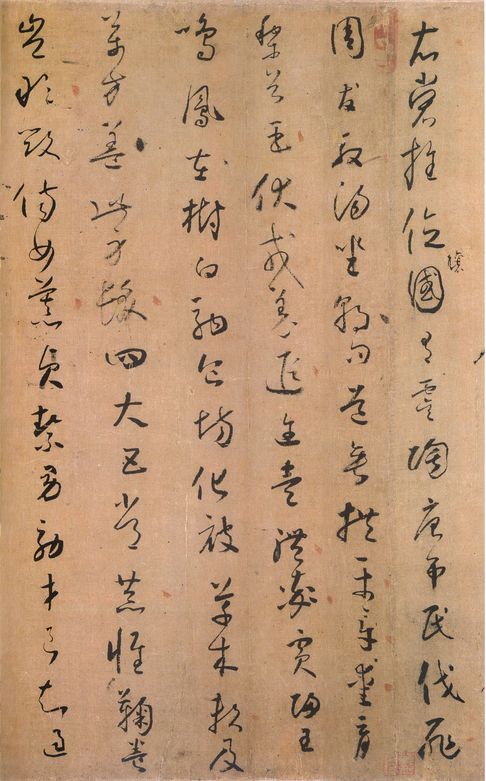 衣裳推位讓國有虞陶唐弔民伐罪
周發殷湯坐朝問道垂拱平章愛育
黎首臣伏戎羌遐邇壹體率賓歸王
鳴鳳在樹白駒食場化被草木賴及
萬方蓋此身髮四大五常恭惟鞠養
豈敢毀傷女慕貞絜男效才良知過